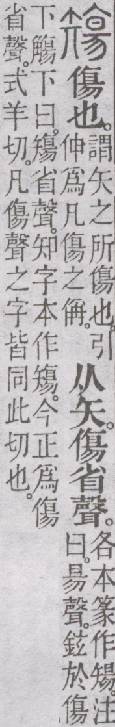 𥏻傷也。
謂矢之所傷也。引
伸爲凡傷之偁。
从矢。傷省聲。
各本篆作𥏫。注
曰。昜聲。鉉於傷
下觴下曰。𥏻省聲。知字本作𥏻。今正爲傷
省聲。式羊切。凡傷聲之字皆同此切也。